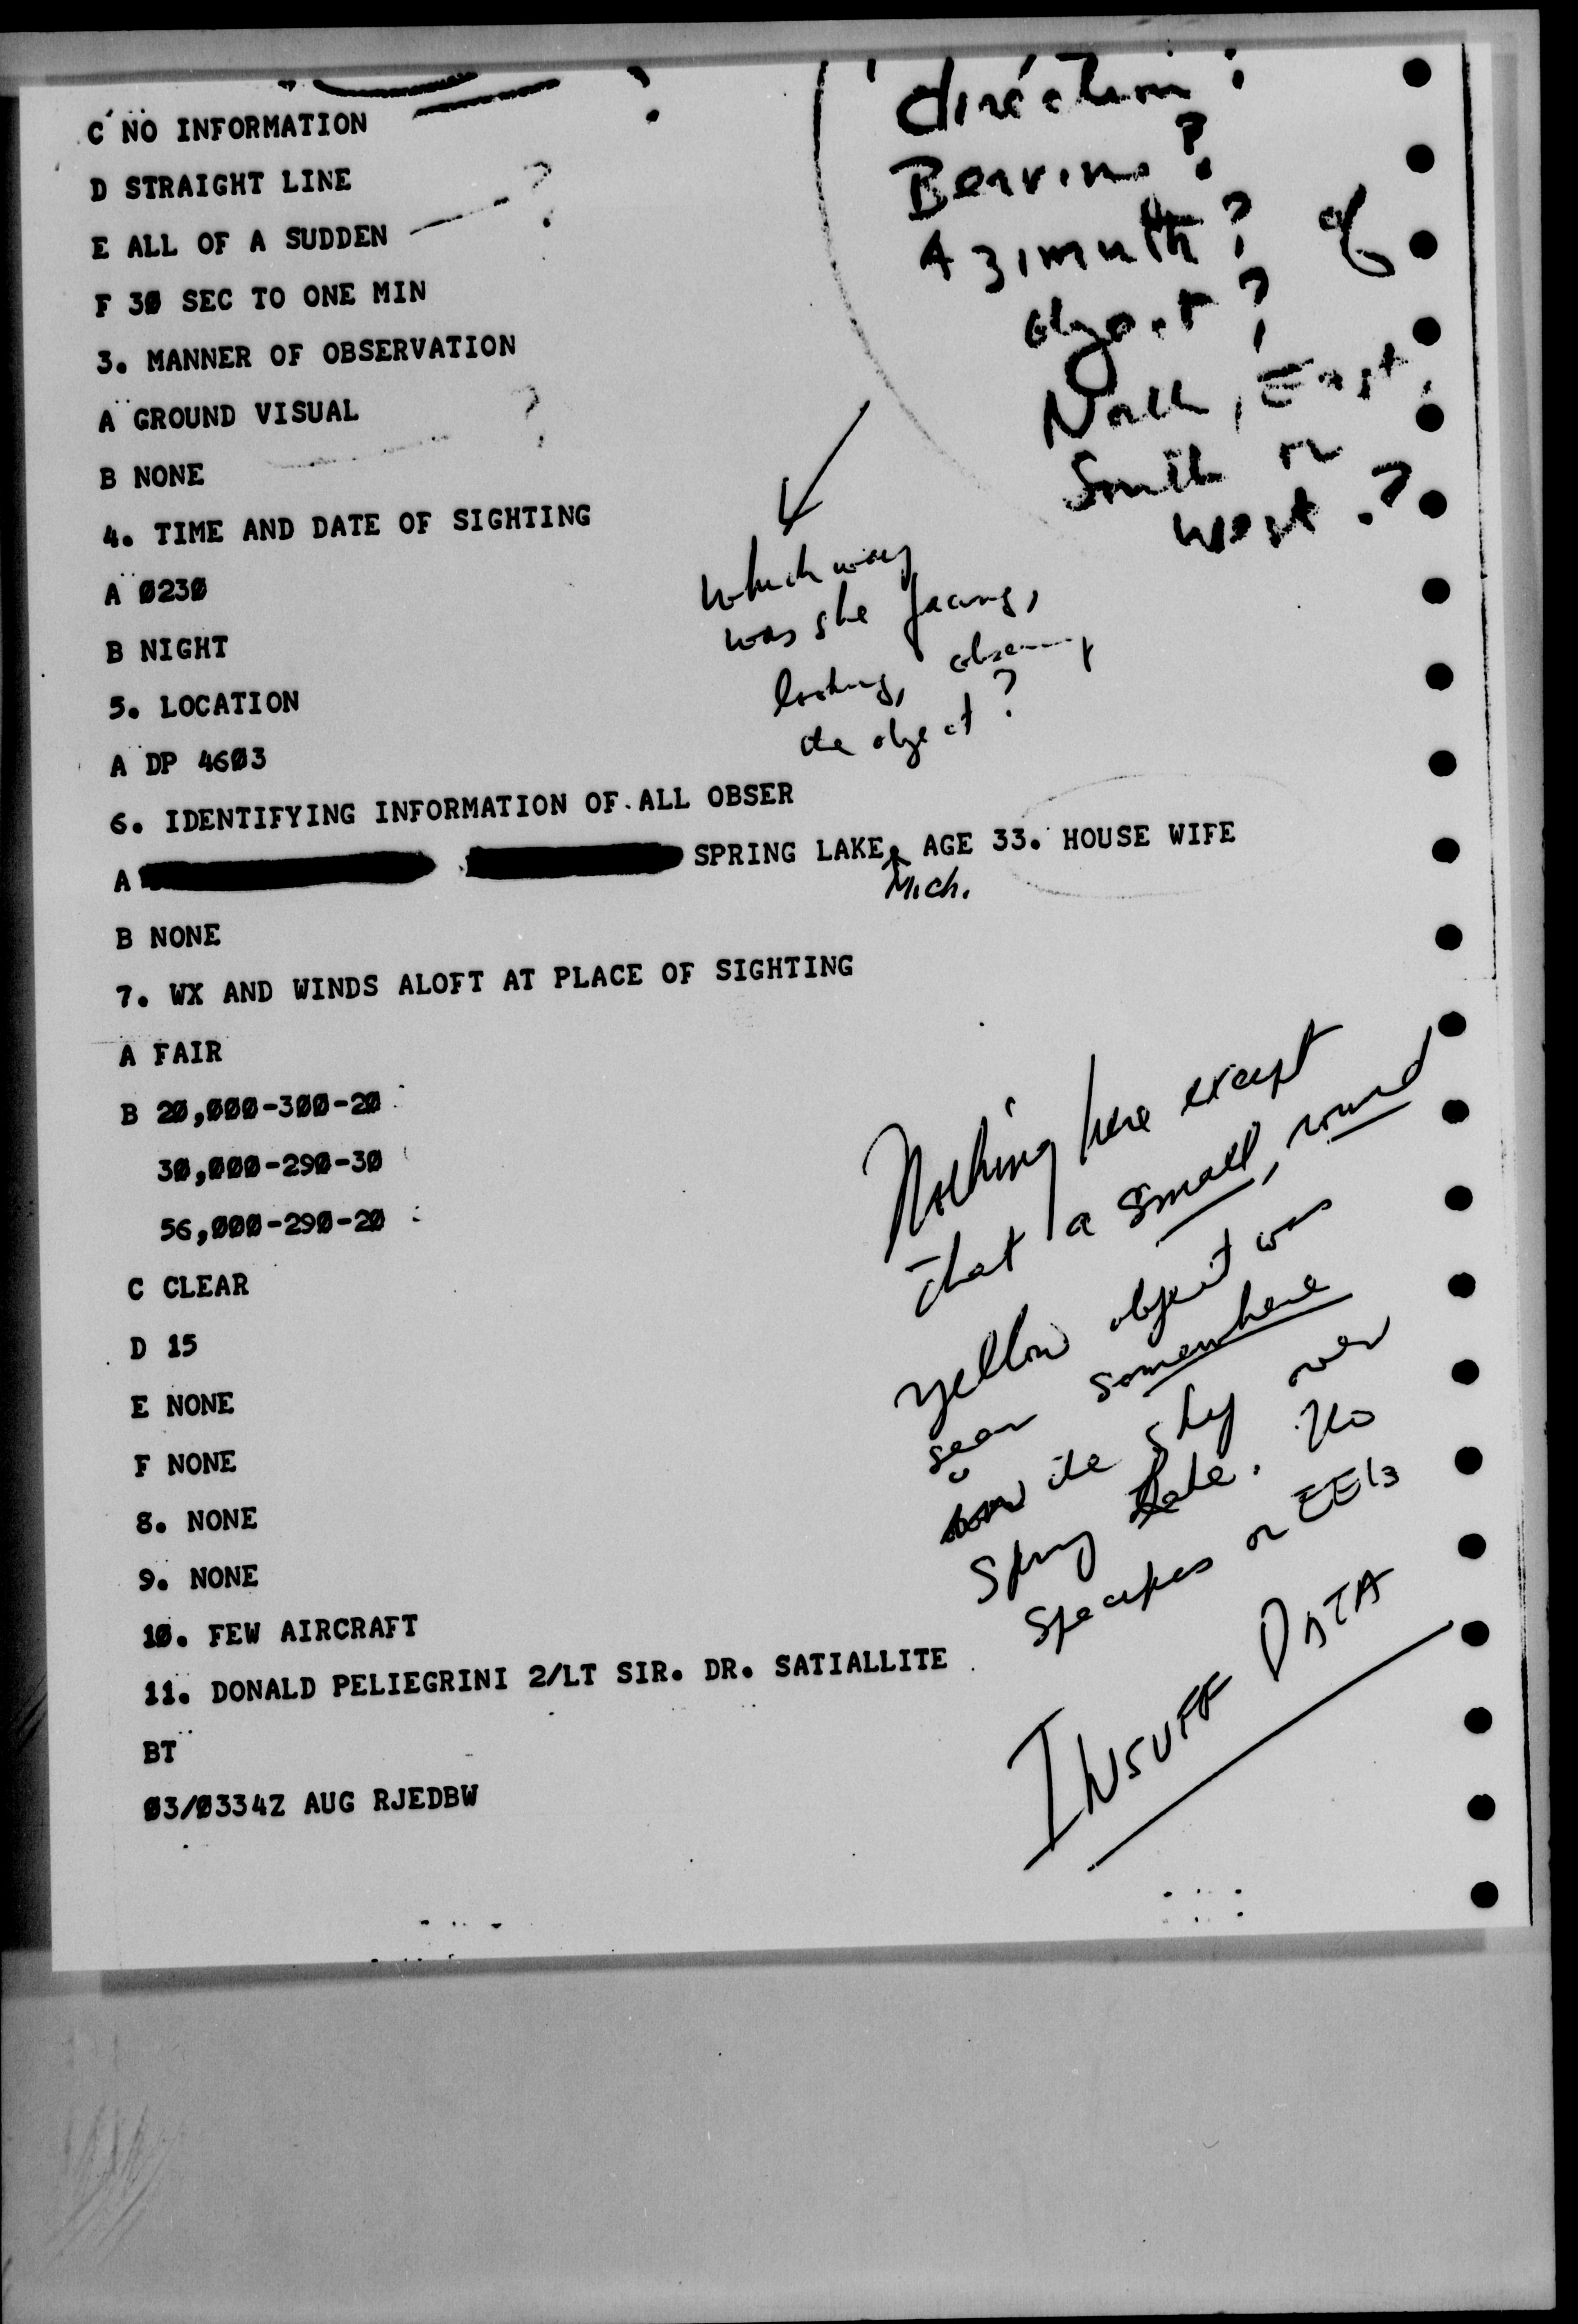 C NO INFORMATION
D STRAIGHT LINE
E ALL OF A SUDDEN — ?
F 30 SEC TO ONE MIN
3. MANNER OF OBSERVATION
A GROUND VISUAL
B NONE ?
4. TIME AND DATE OF SIGHTING
A 0230
B NIGHT
5. LOCATION
A DP 4603
6. IDENTIFYING INFORMATION OF ALL OBSER
A SPRING LAKE, AGE 33. HOUSE WIFE
Mich.
B NONE
7. WX AND WINDS ALOFT AT PLACE OF SIGHTING
A FAIR
B 20,000-300-20
30,000-290-30
56,000-290-20
C CLEAR
D 15
E NONE
F NONE
8. NONE
9. NONE
10. FEW AIRCRAFT
11. DONALD PELIEGRINI 2/LT SIR. DR. SATIALLITE
BT
03/0334Z AUG RJEDBW
direction?
Bearing?
Azimuth? of
object?
North, East,
South or
West?
which way
was she facing,
looking, observing
the object?
Nothing here except
that a small, round
yellow object was
seen somewhere
in the sky over
Spring Lake. No
Specifics or EEI's
INSUFF DATA